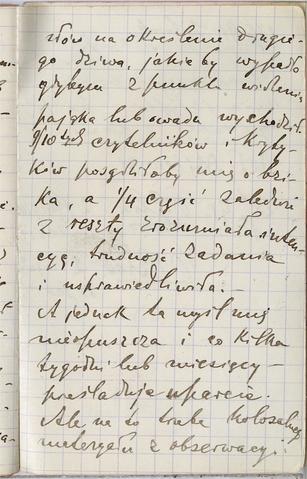 słów na określenie drugie-
go dziwa, jakieby wypadło
gdybym z punktu widzenia
pająka lub owadu wychodził
9/10 tych czytelników i kryty-
ków posądziłaby mię o bzi-
ka, a 1/4 część zaledwie
z reszty zrozumiała inten-
cyę, trudność zadania
i usprawiedliwiła.—
A jednak ta myśl mię
nieopuszcza i co kilka
tygodni lub miesięcy—
prześladuje uparcie.
Ale na to trzeba kolosalnego
materyału z obserwacyi.